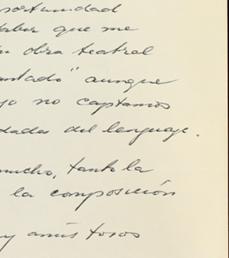 oportunidad
saber que me
obra teatral
aunque
yo no captamos
del lenguaje.
mucho, tanto la
la composición
y amistosos